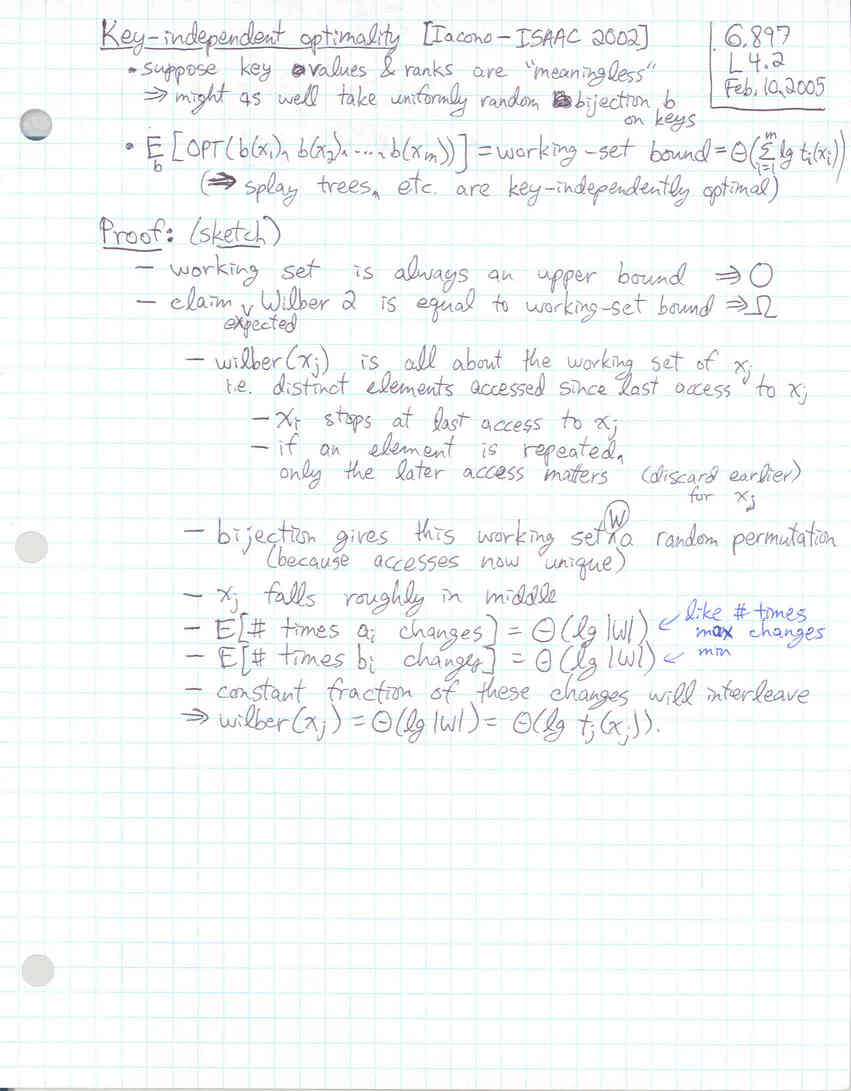 Key-independent optimality [Iacono-ISAAC 2002]
6.897
L 4.2
Feb. 10, 2005
• suppose key values & ranks are "meaningless"
⇒ might as well take uniformly random bijection b
on keys
• E_b [OPT(b(x₁), b(x₂), ..., b(x_m))] = working-set bound = Θ(∑_{i=1}^m lg t_i(x_i))
(⇒ splay trees, etc. are key-independently optimal)
Proof: (sketch)
- working set is always an upper bound ⇒ O
- claim ˅ Wilber 2 is equal to working-set bound ⇒ Ω
expected
- wilber(x_j) is all about the working set of x_j
i.e. distinct elements accessed since last access to x_j
- x_i stops at last access to x_j
- if an element is repeated,
only the later access matters (discard earlier)
for x_j
W
- bijection gives this working set ^ a random permutation
(because accesses now unique)
- x_j falls roughly in middle
- E[# times a_i changes] = Θ(lg |W|) ← like # times
max changes
- E[# times b_i changes] = Θ(lg |W|) ← min
- constant fraction of these changes will interleave
⇒ wilber(x_j) = Θ(lg |W|) = Θ(lg t_j(x_j)).